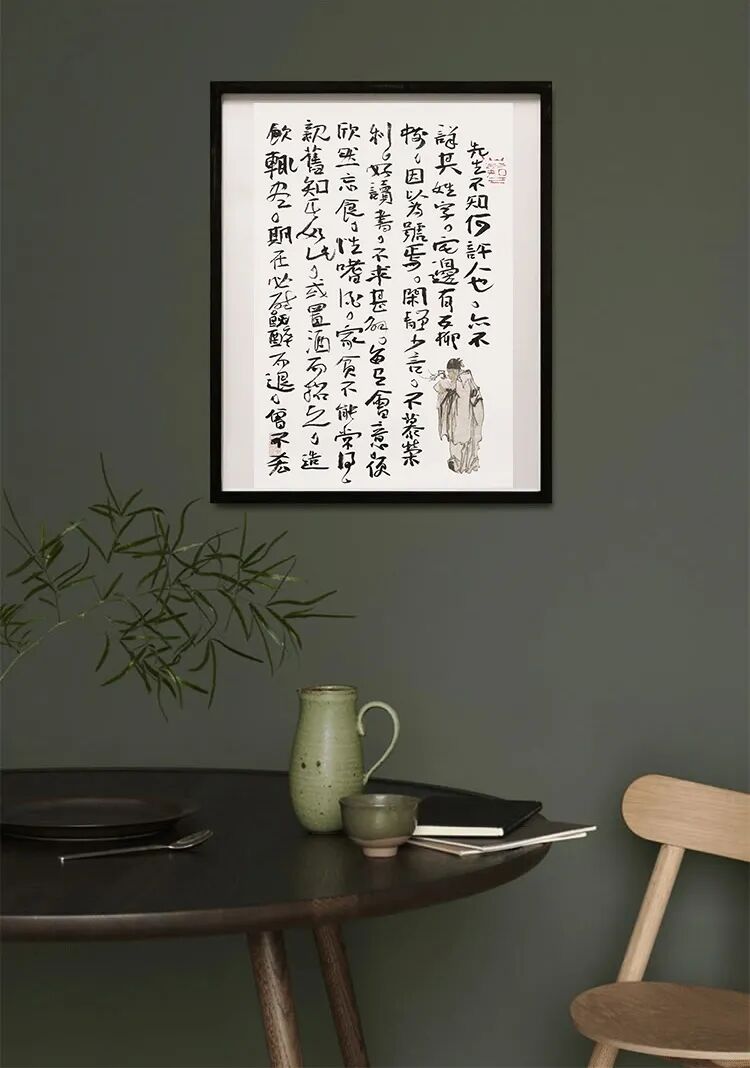 先生不知何許人也，亦不
詳其姓字。宅邊有五柳
樹。因以為號焉。閑靜少言。不慕榮
利。好讀書。不求甚解。每有會意便
欣然忘食。性嗜酒。家貧不能常得。
親舊知其如此，或置酒而招之，造
飲輒盡。期在必醉既醉而退。曾不吝